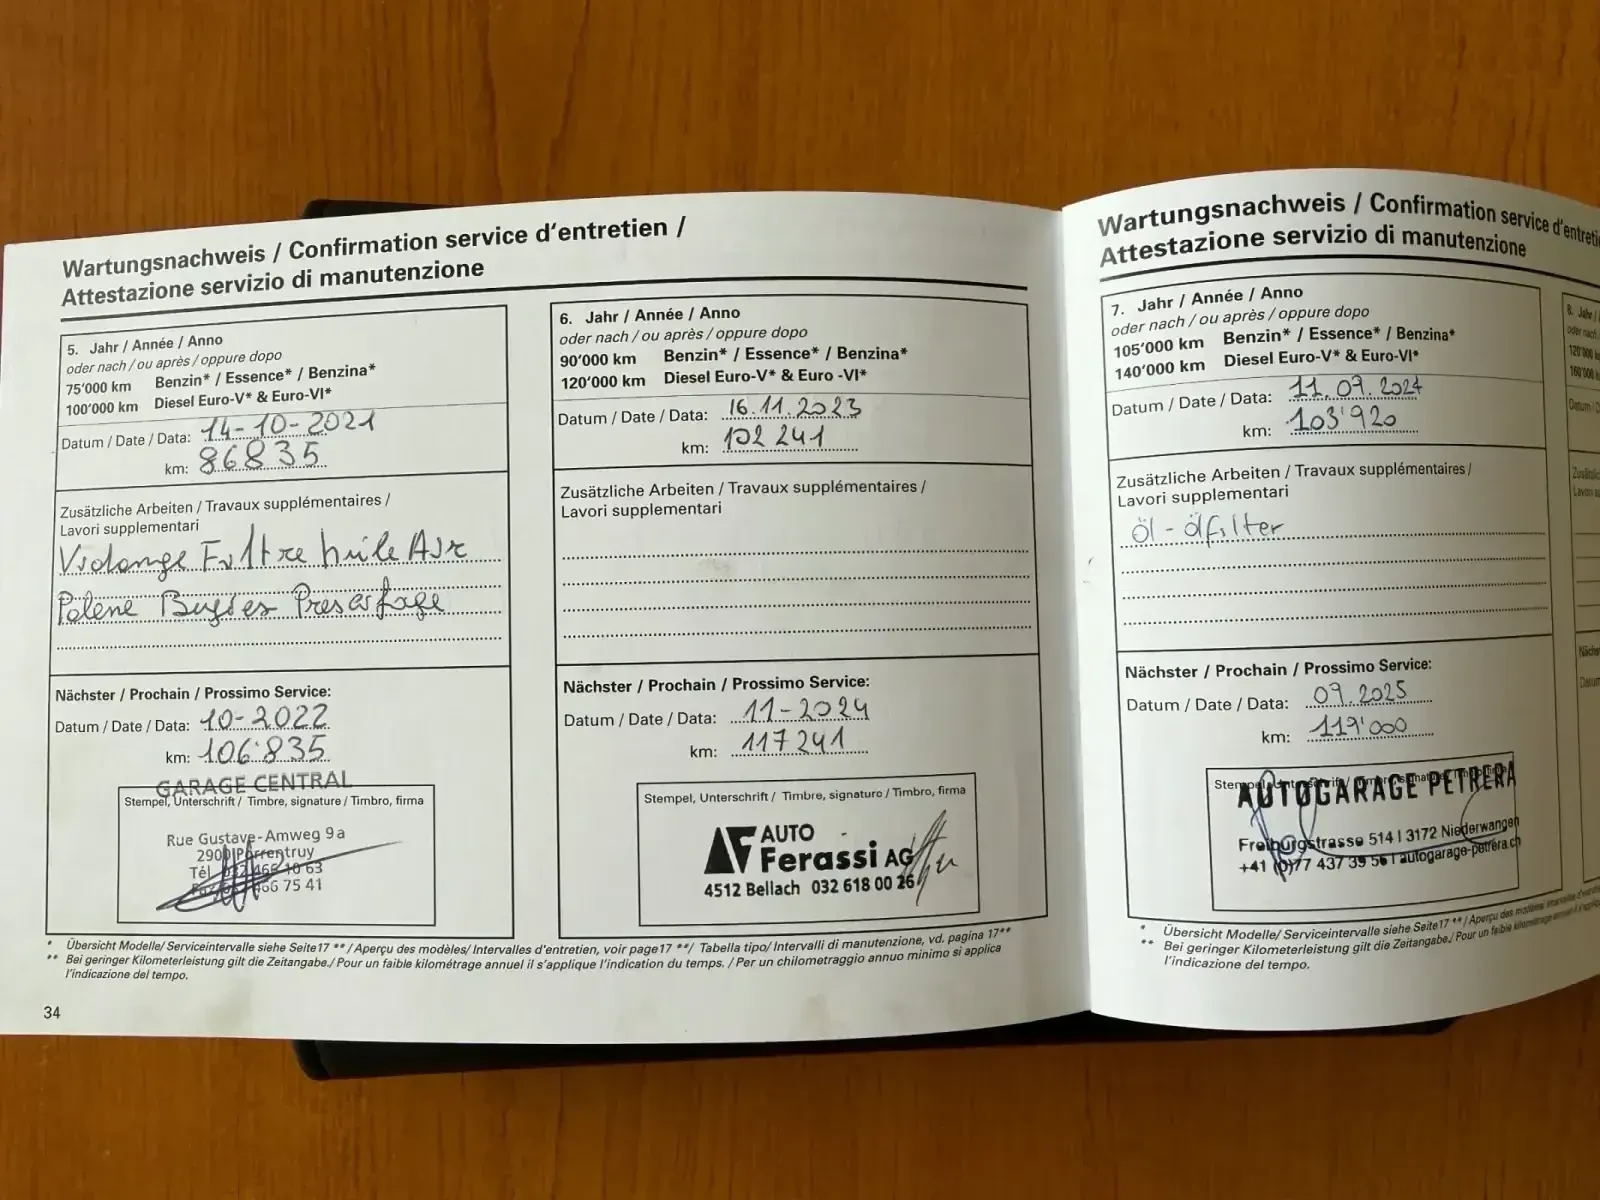 Wartungsnachweis / Confirmation service d'entretien /
Attestazione servizio di manutenzione
5. Jahr / Année / Anno
oder nach / ou après / oppure dopo
75'000 km Benzin* / Essence* / Benzina*
100'000 km Diesel Euro-V* & Euro-VI*
Datum / Date / Data: 14-10-2021
km: 86835
Zusätzliche Arbeiten / Travaux supplémentaires /
Lavori supplementari
Vidange Filtre huile Air
Polene Bugies
Nächster / Prochain / Prossimo Service:
Datum / Date / Data: 10-2022
km: 106'835
GARAGE CENTRAL
Stempel, Unterschrift / Timbre, signature / Timbro, firma
Rue Gustave-Amweg 9a
2900 Porrentruy
Tél 032 466 10 63
466 75 41
6. Jahr / Année / Anno
oder nach / ou après / oppure dopo
90'000 km Benzin* / Essence* / Benzina*
120'000 km Diesel Euro-V* & Euro -VI*
Datum / Date / Data: 16.11.2023
km: 102 241
Zusätzliche Arbeiten / Travaux supplémentaires /
Lavori supplementari
Nächster / Prochain / Prossimo Service:
Datum / Date / Data: 11-2024
km: 117 241
Stempel, Unterschrift / Timbre, signature / Timbro, firma
AUTO
Ferassi AG
4512 Bellach 032 618 00 26
* Übersicht Modelle/ Serviceintervalle siehe Seite17 ** / Aperçu des modèles/ Intervalles d'entretien, voir page17 **/ Tabella tipo/ Intervalli di manutenzione, vd. pagina 17**
** Bei geringer Kilometerleistung gilt die Zeitangabe./ Pour un faible kilométrage annuel il s'applique l'indication du temps. / Per un chilometraggio annuo minimo si applica
l'indicazione del tempo.
34
Wartungsnachweis / Confirmation service d'entreti
Attestazione servizio di manutenzione
7. Jahr / Année / Anno
oder nach / ou après / oppure dopo
105'000 km Benzin* / Essence* / Benzina*
140'000 km Diesel Euro-V* & Euro-VI*
Datum / Date / Data: 11.09.2024
km: 103'920
Zusätzliche Arbeiten / Travaux supplémentaires /
Lavori supplementari
Öl - Ölfilter
Nächster / Prochain / Prossimo Service:
Datum / Date / Data: 09.2025
km: 119'000
Stempel, Unterschrift / Timbre, signature / Timbro, firma
AUTOGARAGE PETRERA
Freiburgstrasse 514 | 3172 Niederwangen
+41 (0)77 437 39 56 | autogarage-petrera.ch
* Übersicht Modelle/ Serviceintervalle siehe Seite17 ** / Aperçu des modèles/ Intervalles d'entre
** Bei geringer Kilometerleistung gilt die Zeitangabe./ Pour un faible kilométrage annuel il s'app
l'indicazione del tempo.
8. Jahr /
oder nach
120'000 k
160'000 k
Datum / D
Zusätzlic
Lavori su
Nächs
Datum